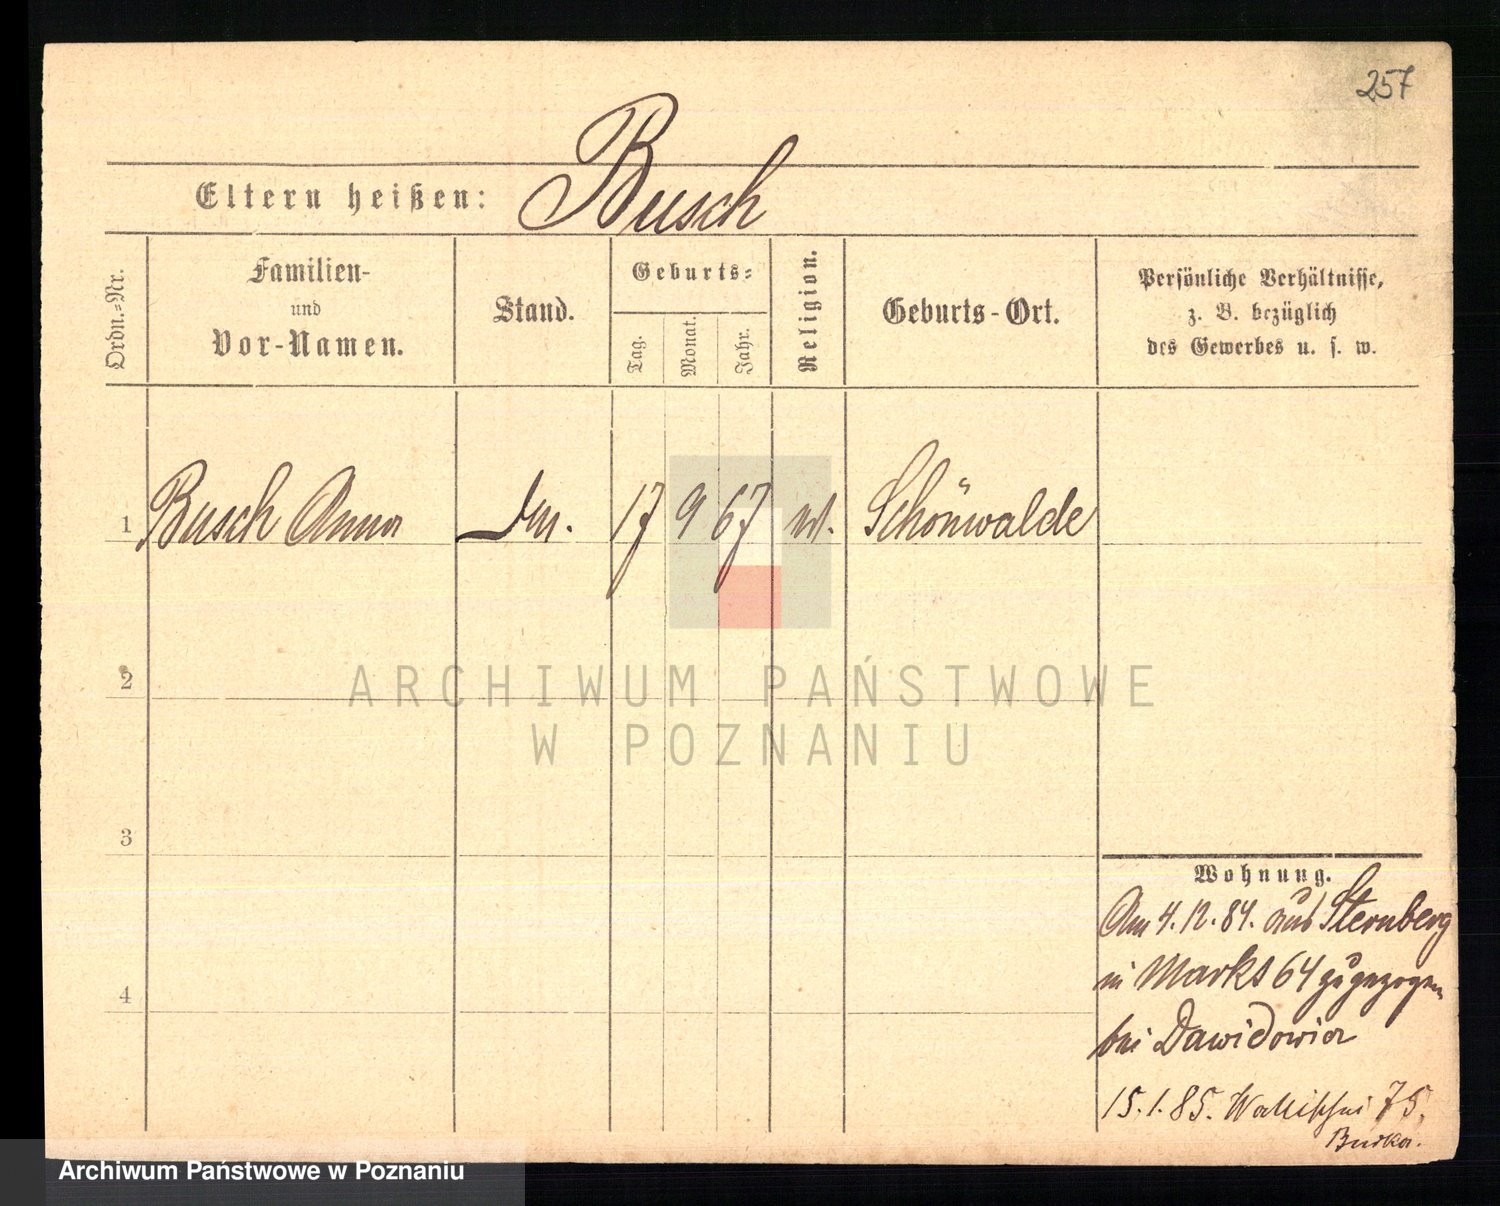 257
Eltern heißen: Busch
Ordn.-Nr.
Familien-
und
Vor-Namen.
Stand.
Geburts-
Tag.
Monat.
Jahr.
Religion.
Geburts-Ort.
Persönliche Verhältnisse,
z. B. bezüglich
des Gewerbes u. s. w.
1 Busch Anna 17 9 67 Schönwalde
2
3
4
Wohnung.
Am 4.12.84. aus Sternberg
in Markt 64 zugezogen
bei Dawidowicz
15.1.85. Wallischei 75.
ARCHIWUM PAŃSTWOWE
W POZNANIU
Archiwum Państwowe w Poznaniu